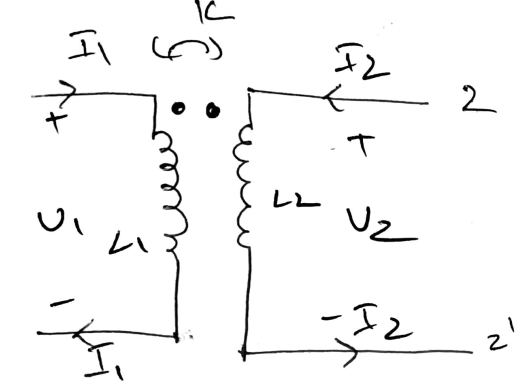 K
I1
I2
2
+
+
U1
L1
L2
U2
-
-I2
I1
2'